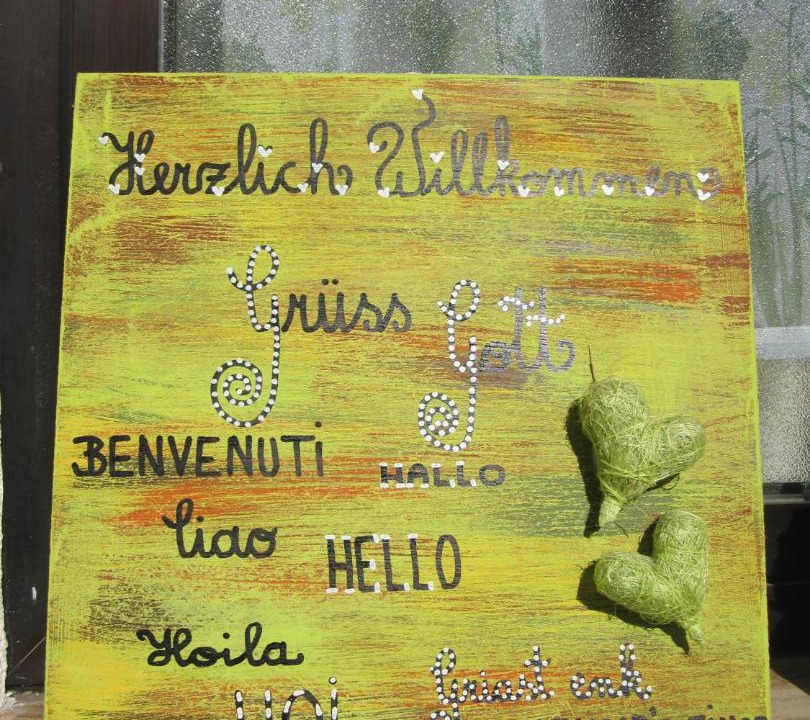 Herzlich Willkommen
Grüss Gott
BENVENUTi
HALLO
Ciao
HELLO
Hoila
Griast enk
HOi